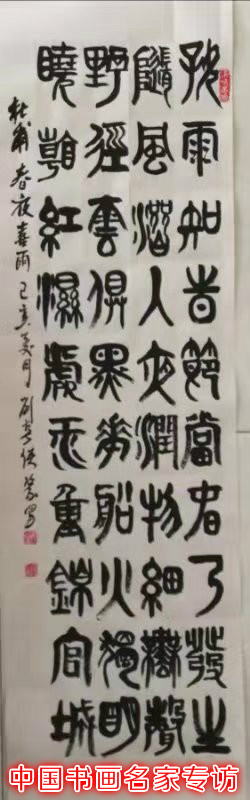 好雨知旹節當春乃發生
隨風潛入夜潤物細無聲
野徑雲俱黑江船火獨明
曉看紅濕處花重錦官城
杜甫春夜喜雨己亥夏月
中国书画名家专访